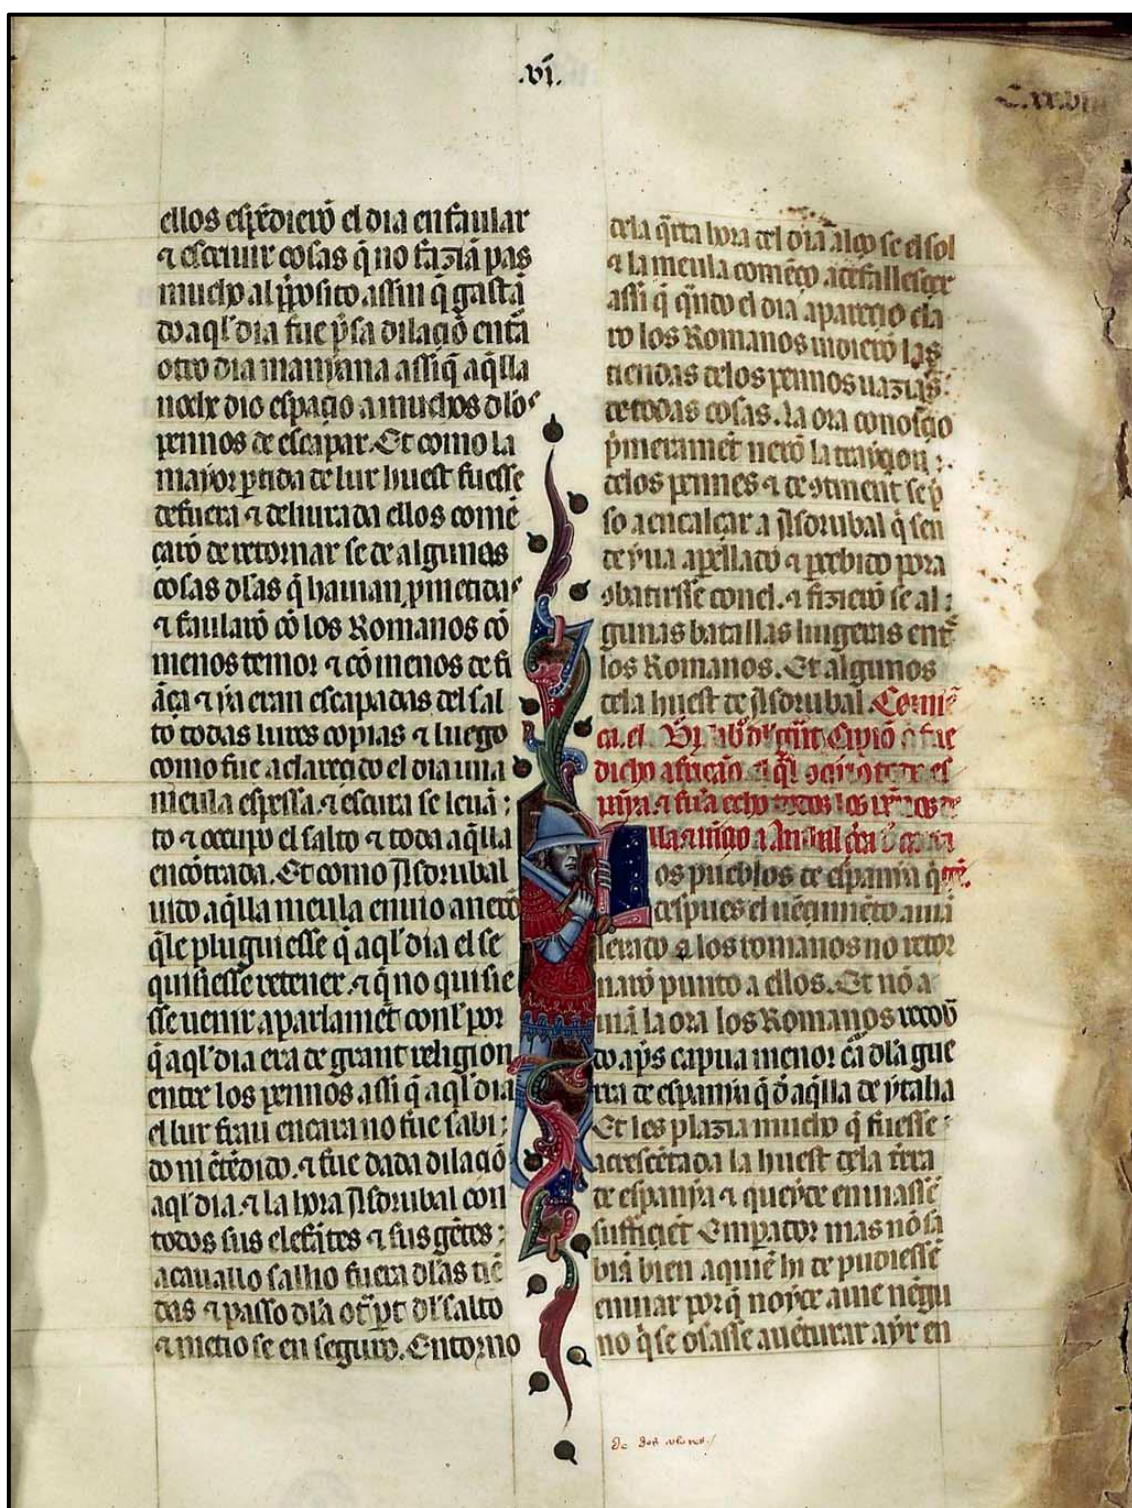 .vj.
C.xx.vii
ellos espẽdierõ el dia en faular
⁊ escriuir cosas q̃ no fazÃ­ã pas
mucho al p̃posito assin q̃ gastã
do aq̃l dia fue p̃sa dilaçiõ entã
otro dia manyana assi q̃ aq̃lla
noche dio espaçio a muchos dlos
pennos de escapar. Et como la
mayor ptida de lur huest fuesse
defuera ⁊ deliurada ellos comẽ
çarõ de retornar se de algunas
cosas dlas q̃ hauian pmetidas
⁊ faularõ cõ los Romanos cõ
menos temor ⁊ cõ menos de fi
ãça ⁊ ya eran escapadas del sal
to todas lures copias ⁊ luego
como fue aclareçido el dia una
nieula espessa ⁊ escura se leuã:
to ⁊ occupo el salto ⁊ toda aq̃lla
encõtrada. Et como Asdrubal
uido aq̃lla nieula enuio a nerõ
q̃le pluguiesse q̃ aq̃l dia el se
quisiesse retener. ⁊ q̃ no quisie
sse uenir a parlamẽt conl por
q̃ aq̃l dia era de grant religion
entre los pennos assi q̃ aq̃l dia
el lur frau encara no fue sabi:
do ni ẽtẽdido. ⁊ fue dada dilaçiõ
aq̃l dia. ⁊ la hora Asdrubal con
todos sus elefãtes ⁊ sus gẽtes:
a cauallo sallio fuera dlãs tiẽ
das ⁊ passo dla ot̃ pt dl salto
⁊ metio se en seguro. Entorno
dela q̃rta hora del dia alço se el sol
⁊ la nieula comẽço a defallesçer
assi q̃ q̃ndo el dia apareçio cla
ro los Romanos uidierõ las
tiendas delos pennos uazias:
de todas cosas. la ora conosçio
p̃meramẽt nerõ la trayçion:
delos pennos ⁊ de ꝯtinent se p̃
so a encalçar a Asdrubal q̃ sen
de yua apellado ⁊ pcebido pora
ꝯbatirsse con el. ⁊ fizierõ se al:
gunas batallas liugeras ent̃
los Romanos. Et algunos
dela huest de Asdrubal Comiẽ
ça. el VI. libº del
dicho africano
os pueblos de espanya q̃
despues el uẽçimẽto auiã
leuado a los romanos no retor
narõ punto a ellos. Et nõ a
uiã la ora los Romanos recob̃
do ap̃s capua menor cã dla gue
rra de espanya q̃ d̃ aq̃lla de ytalia
Et les plazia mucho q̃ fuesse:
acresçẽtada la huest dela tr̃ra
de espanya ⁊ que yde enuiassẽ
suffiçiẽt Emperador mas nõ sa
biã bien a quiẽ hi de pudiessẽ
enuiar por q̃ no yde auie nẽgu
no q̃ se osasse auẽturar a yr en